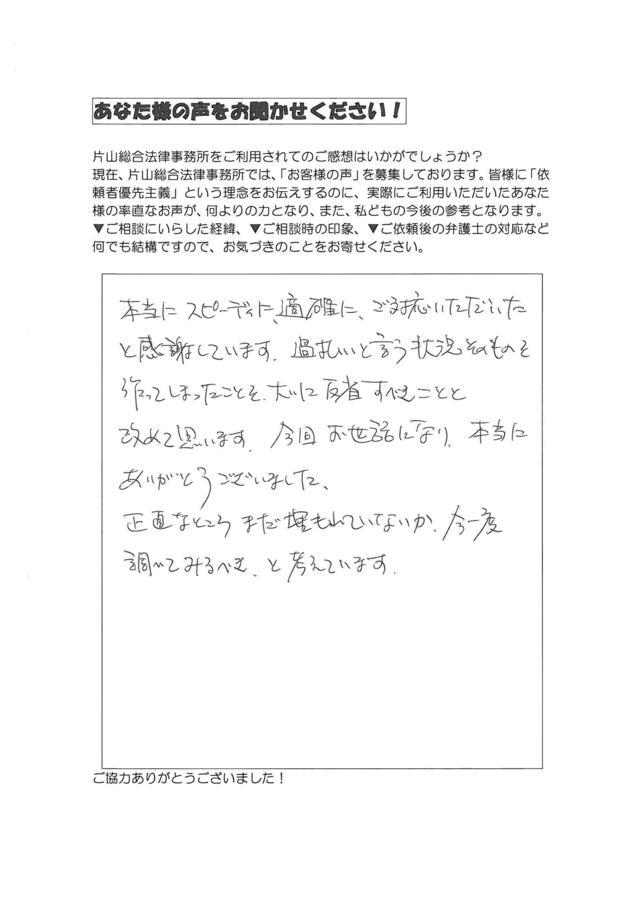 あなた様の声をお聞かせください！
片山総合法律事務所をご利用されてのご感想はいかがでしょうか？
現在、片山総合法律事務所では、「お客様の声」を募集しております。皆様に「依
頼者優先主義」という理念をお伝えするのに、実際にご利用いただいたあなた
様の率直なお声が、何よりの力となり、また、私どもの今後の参考となります。
▼ご相談にいらした経緯、▼ご相談時の印象、▼ご依頼後の弁護士の対応など
何でも結構ですので、お気づきのことをお寄せください。
本当に スピーディに、適確に、ご対応いただいた
と感謝しています。過払いと言う状況そのものを
作ってしまったことを、大いに反省すべきことと
改めて思います。今回 お世話になり、本当に
ありがとうございました、
正直なところ まだ埋もれていないか、今一度
調べてみるべき、と考えています。
ご協力ありがとうございました！